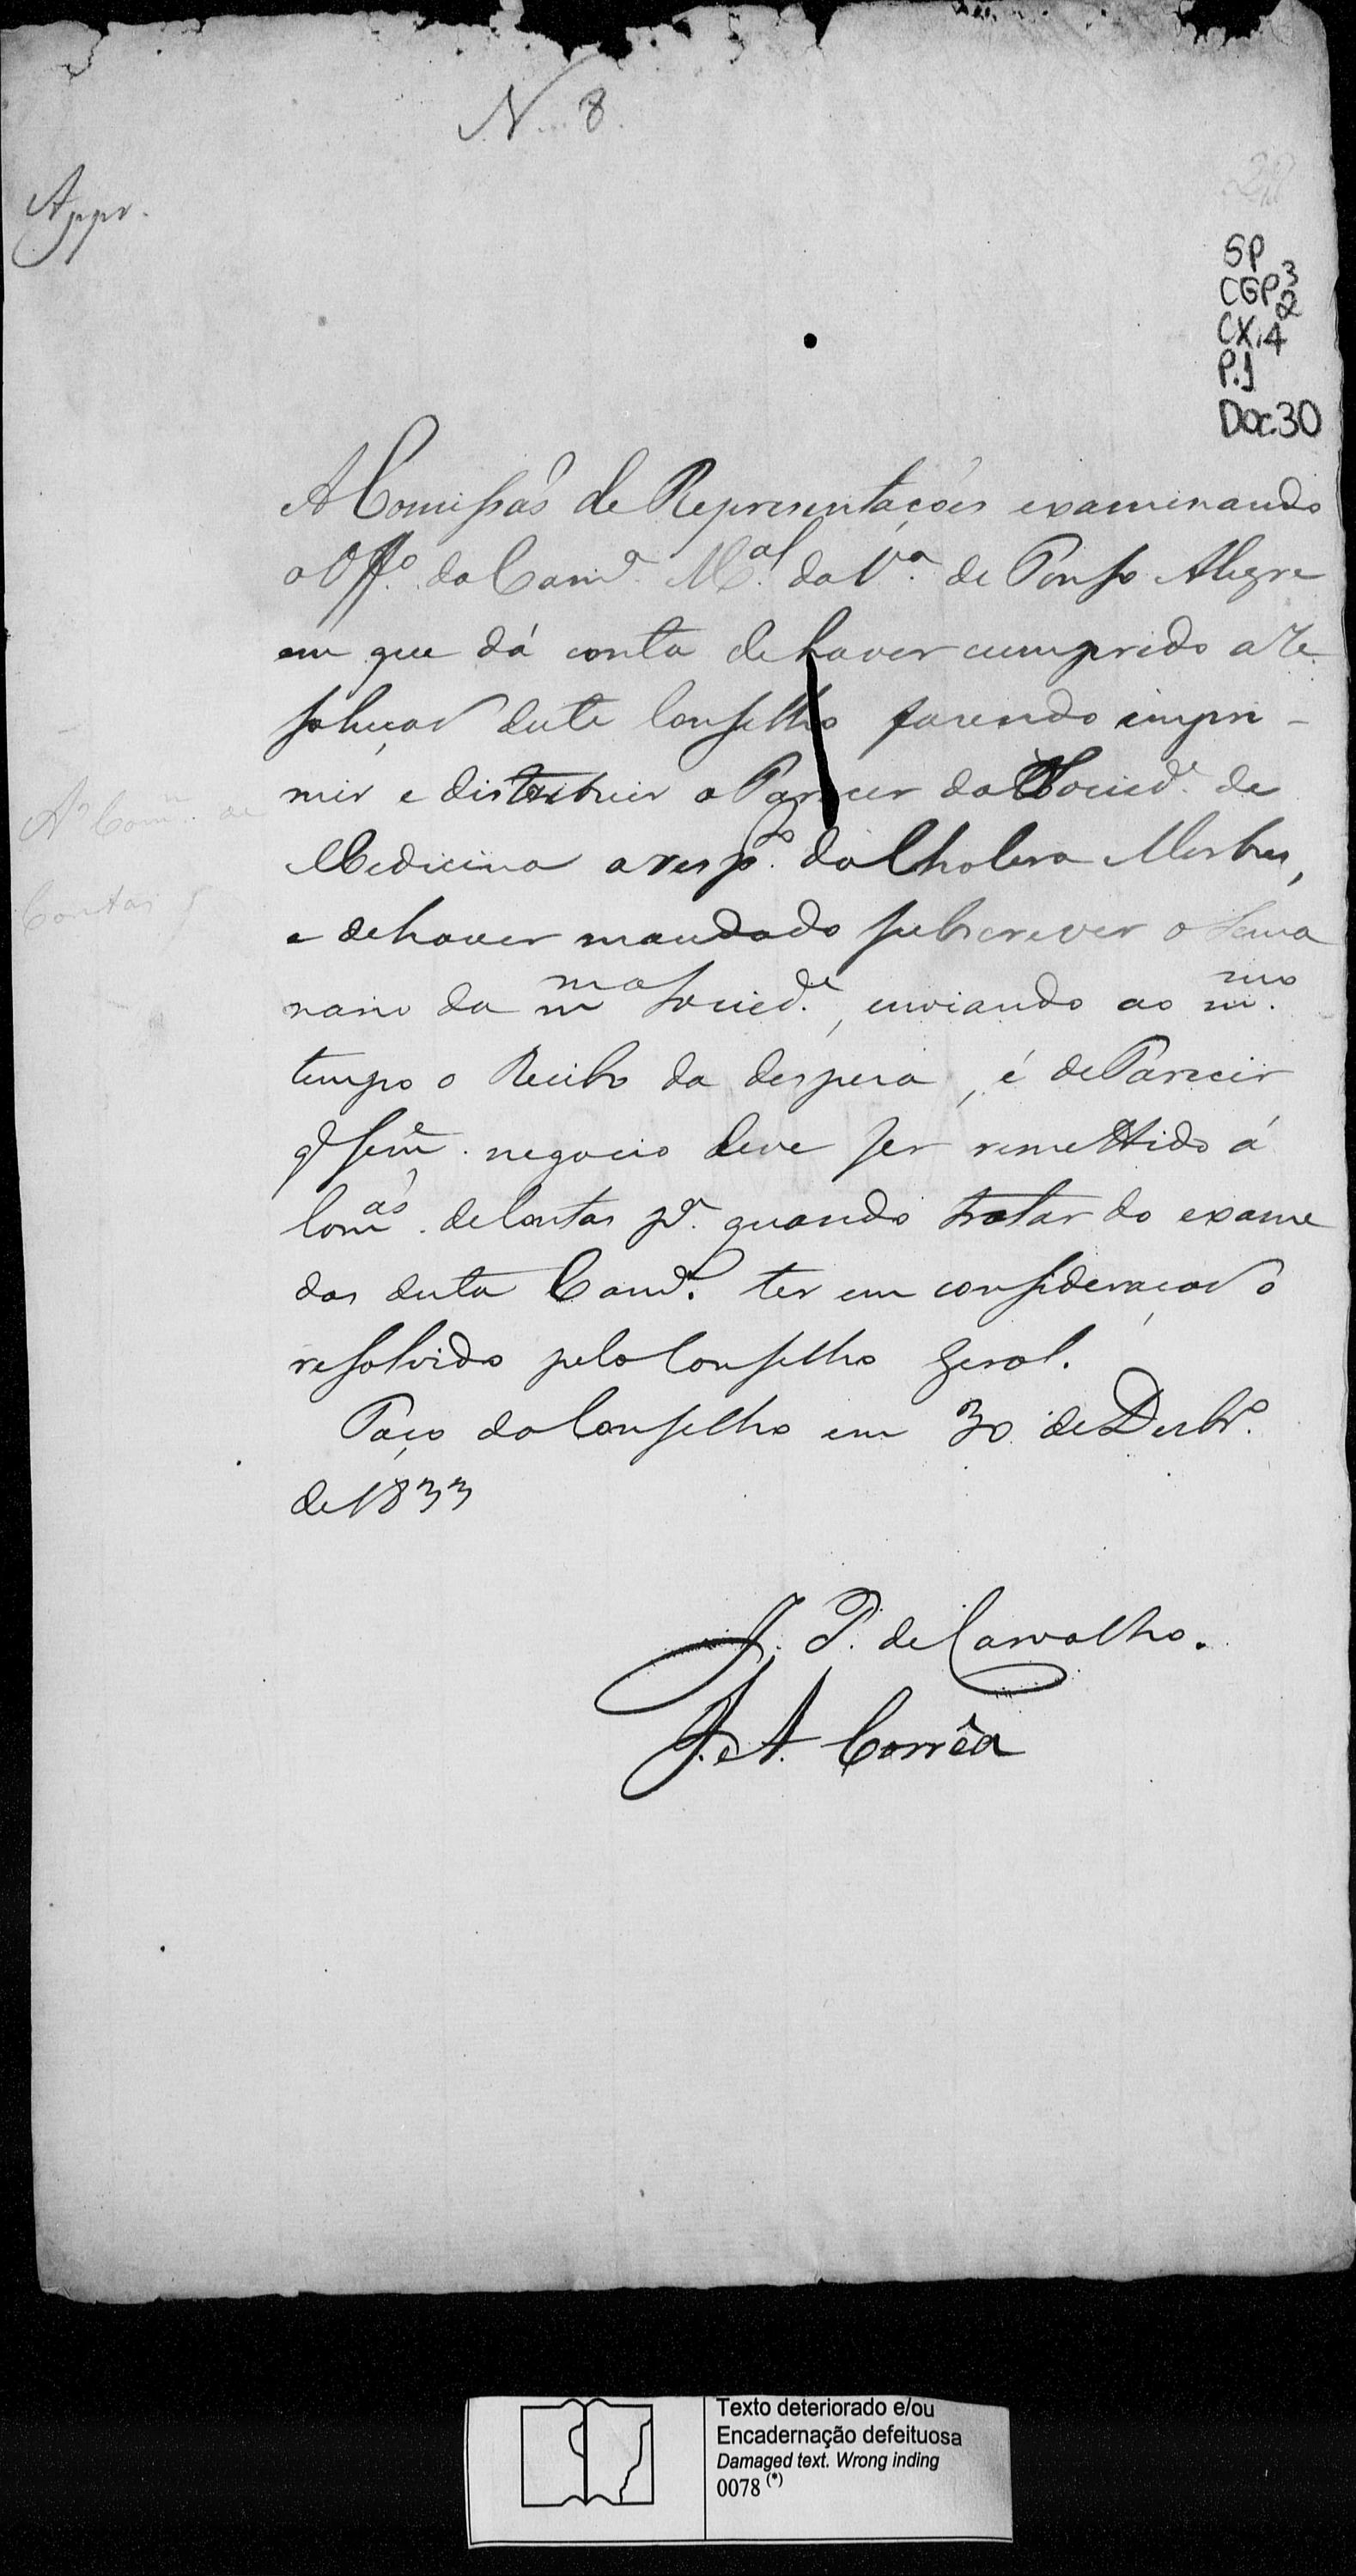 N. 8.
Appr.
SP
CGP 3
2
CX.4
P.1
Doc.30
A Comissaõ de Representações examinando
o Off.º da Camª. M.al da V.ª de Pouso Alegre
em que dá conta de haver cumprido a Re
soluçaõ deste Conselho fazendo impri-
mir e distribuir o Parecer da Socied.e de
Medicina a resp.º da Cholera Morbus,
e de haver mandado subscrever o Sema
nario da m.ma Socied.e, enviando ao m.mo
tempo o Recibo da despesa, é de Parecer
q' negocio deve ser remettido á
Com.aõ de Contas p.ª quando tratar do exame
das desta Camª. ter em consideraçaõ o
resolvido pelo Conselho Geral.
Paço do Conselho em 30 de Dezbr.º
de 1833
Aº Com.m de
Contas
J. P. de Carvalho.
J. A. Corrêa
Texto deteriorado e/ou
Encadernação defeituosa
Damaged text. Wrong inding
0078 (*)